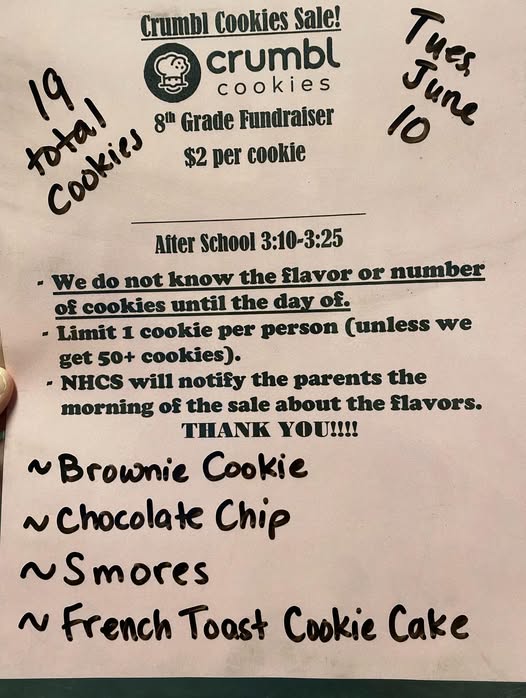 Crumbl Cookies Sale!
crumbl
cookies
19
total
Cookies
Tues,
June
10
8th Grade Fundraiser
$2 per cookie
After School 3:10-3:25
- We do not know the flavor or number
of cookies until the day of.
- Limit 1 cookie per person (unless we
get 50+ cookies).
- NHCS will notify the parents the
morning of the sale about the flavors.
THANK YOU!!!!
~ Brownie Cookie
~ Chocolate Chip
~ Smores
~ French Toast Cookie Cake